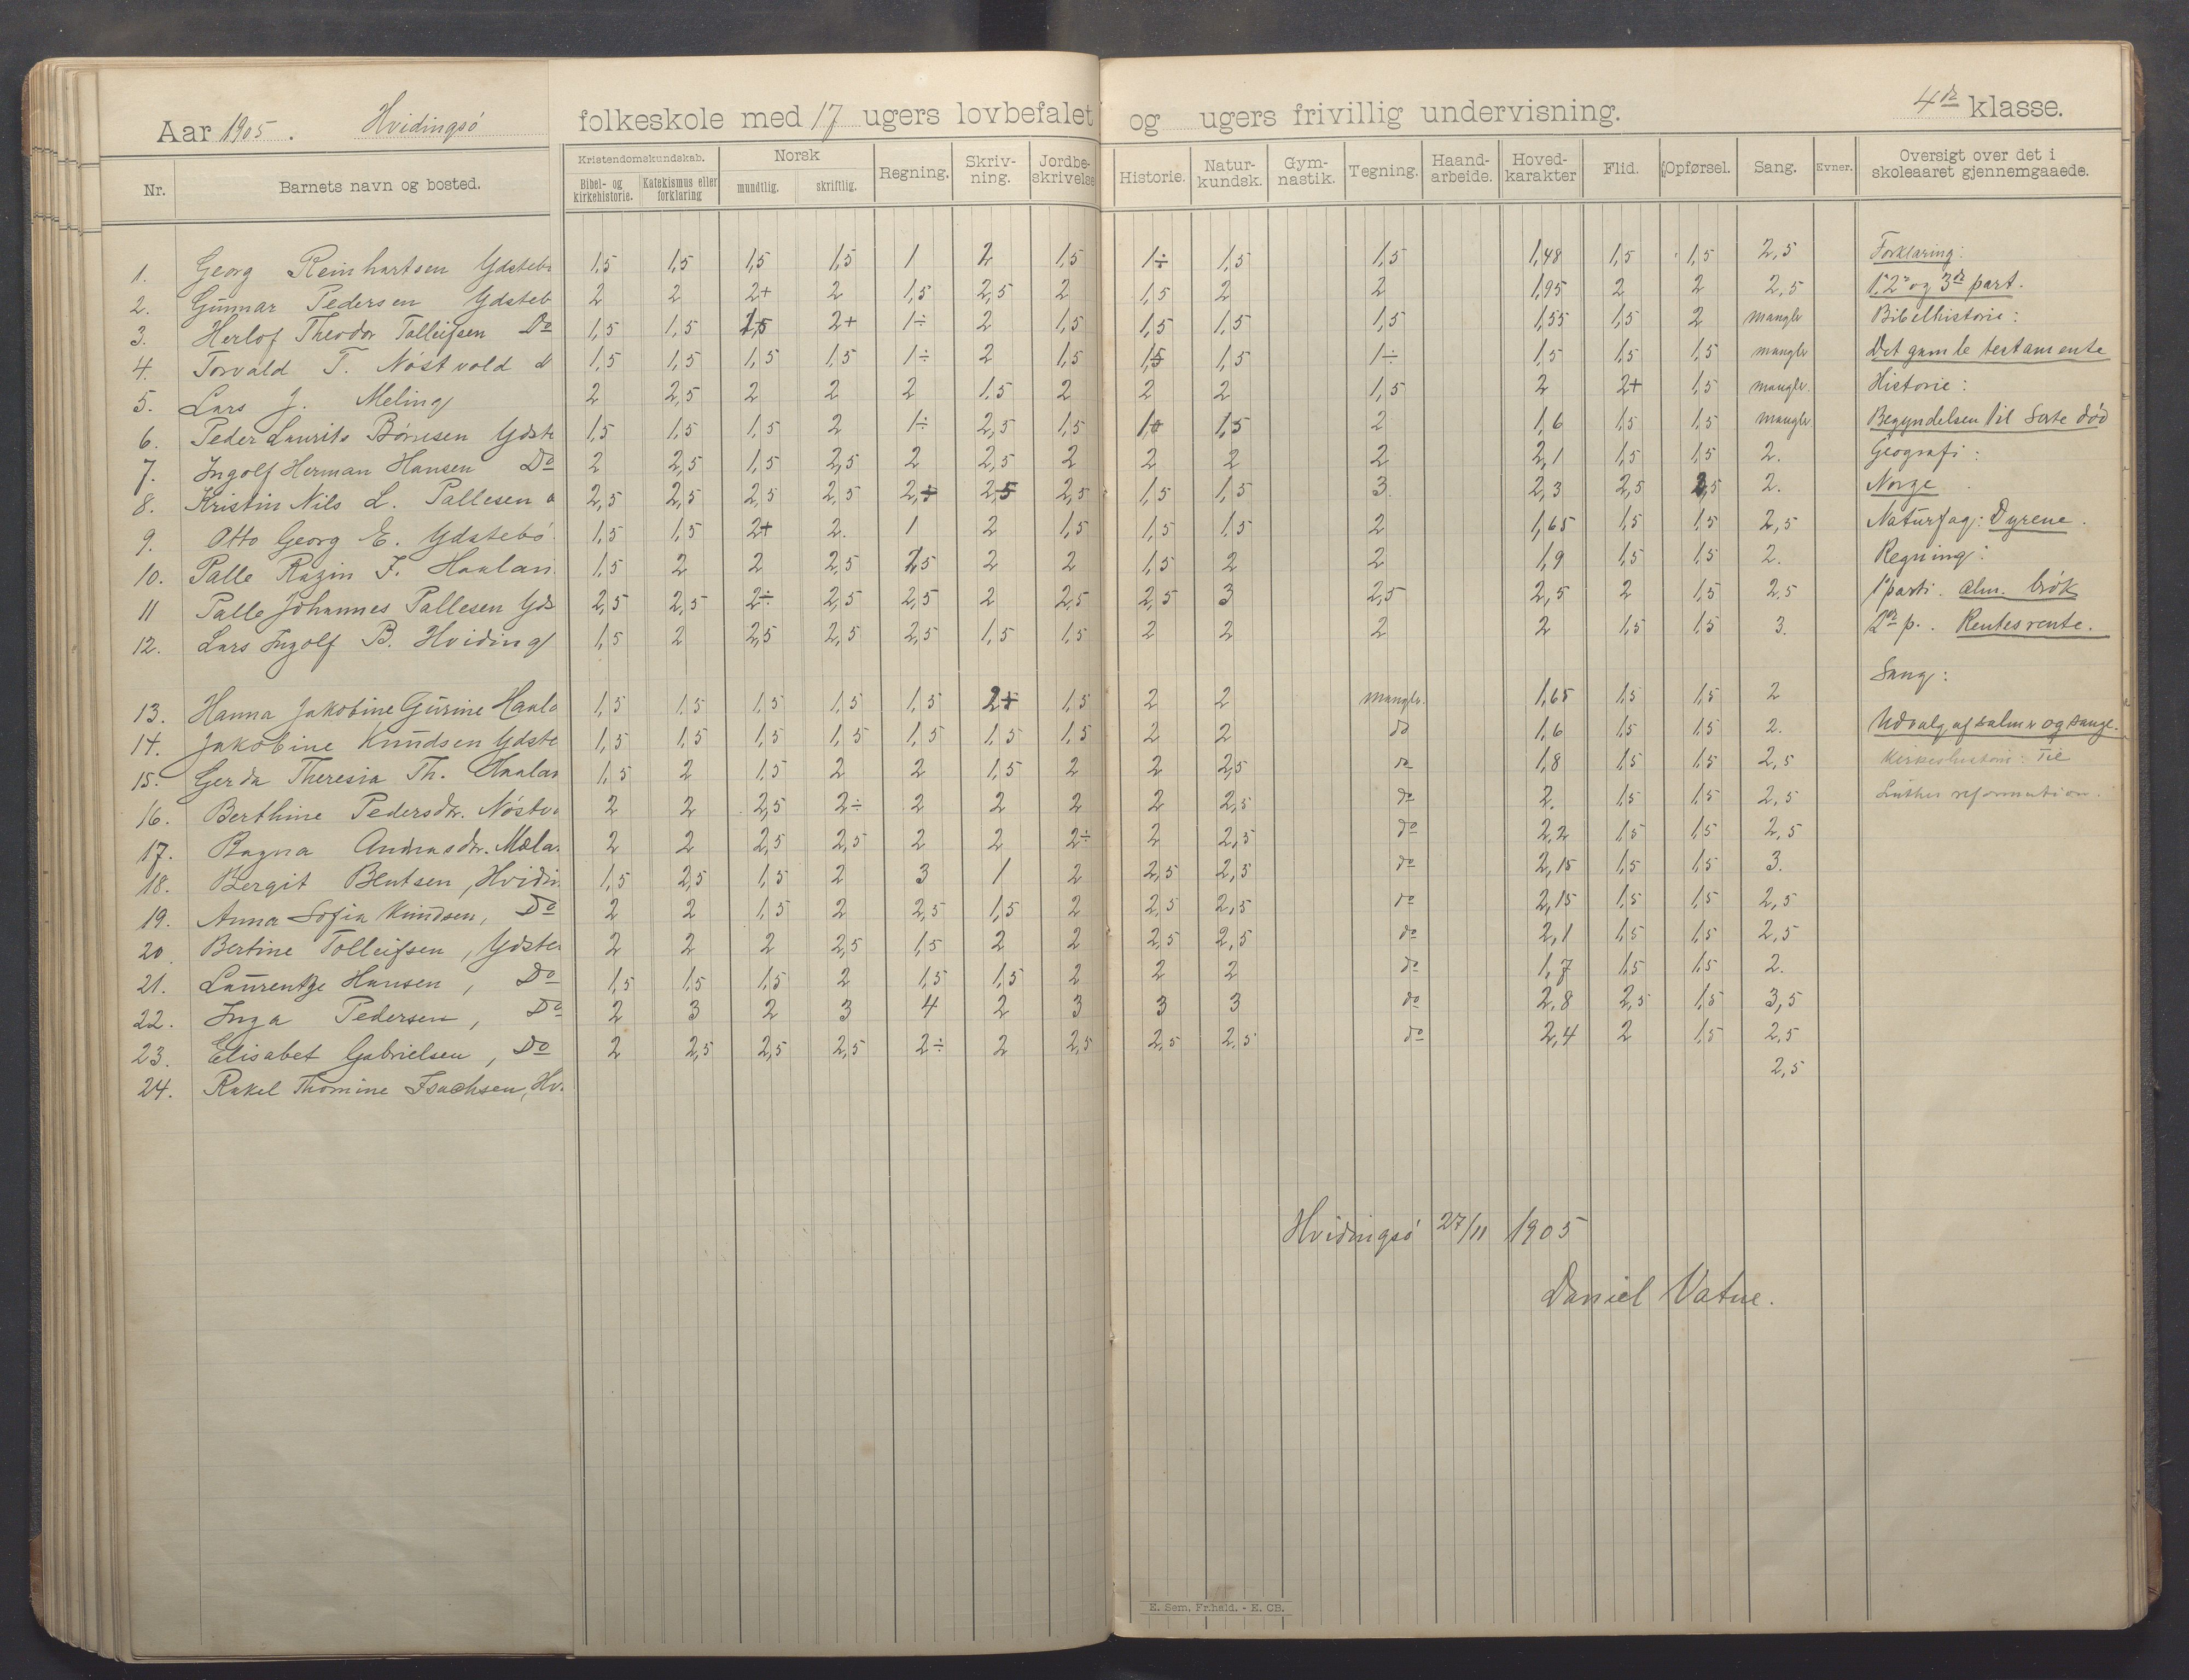 Aar 1905. Hvidingsö folkeskole med 17 ugers lovbefalet og ugers frivillig undervisning. 4de klasse.
Nr. Barnets navn og bosted. Kristendomskundskab. Bibel- og kirkehistorie. Katekismus eller forklaring Norsk mundtlig. skriftlig. Regning. Skriv-ning. Jordbe-skrivelse Historie. Natur-kundsk. Gym-nastik. Tegning. Haand-arbeide. Hoved-karakter Flid. Opførsel. Sang. Evner. Oversigt over det i skoleaaret gjennemgaaede.
1. Georg Reinhartsen Ydstebö 1,5 1,5 1,5 1,5 1 2 1,5 1÷ 1,5 1,5 1,48 1,5 1,5 2,5 Forklaring:
2. Gunnar Pedersen Ydsteb 2 2 2+ 2 1,5 2,5 2 1,5 2 2 1,95 2 2 2,5 1. 2 og 3de part.
3. Herlof Theodor Tolleifsen Do 1,5 1,5 1,5 2+ 1÷ 2 1,5 1,5 1,5 1,5 1,55 1,5 2 mangler Bibelhistorie:
4. Torvald T. Nöstvold d 1,5 1,5 1,5 1,5 1÷ 2 1,5 1,5 1,5 1÷ 1,5 1,5 1,5 mangler Det gamle testamente
5. Lars J. Meling 2 2,5 2 2 2 1,5 2 2 2 1,5 2 2+ 1,5 mangler. Historie:
6. Peder Laurits Börresen Ydste 1,5 1,5 1,5 2 1÷ 2,5 1,5 1,5 2 1,6 1,5 1,5 mangler Begyndelsen til Sverre död
7. Ingolf Herman Hansen Do 2 2,5 1,5 2,5 2 2,5 2 2 2 2 2,1 1,5 1,5 2. Geografi:
8. Kristin Nils L. Pallesen 2,5 2,5 2,5 2,5 2,+ 2,5 2,5 1,5 1,5 3. 2,3 2,5 2,5 2. Norge
9. Otto Georg E. Ydstebö 1,5 1,5 2+ 2. 1 2 1,5 1,5 1,5 2 1,65 1,5 1,5 2,5 Naturfag: Dyrene.
10. Palle Ragin F. Haalan 1,5 2 2 2,5 1,5 2 2 1,5 2 2 1,9 1,5 1,5 2. Regning:
11 Palle Johannes Pallesen Yds 2,5 2,5 2÷ 2,5 2,5 2 2,5 2,5 3 2,5 2,5 2 1,5 2,5 1ste parti. alm. brök
12. Lars Ingolf B. Hviding 1,5 2 2,5 2,5 2,5 1,5 1,5 2 2 2 2 1,5 1,5 3. 2de p. Rentesrente.
Sang:
13. Hanna Jakobine Gurine Haala 1,5 1,5 1,5 1,5 1,5 2+ 1,5 2 2 mangler. 1,65 1,5 1,5 2
14. Jakobine Knudsen Ydste 1,5 1,5 1,5 1,5 1,5 1,5 1,5 2 2 do 1,6 1,5 1,5 2. Udvalg af salmer og sange.
15. Gerda Theresia Th. Haalan 1,5 2 1,5 2 2 1,5 2 2 2,5 do 1,8 1,5 1,5 2,5 Kirkehistorie: Til
16. Berthine Pedersdtr. Nöstvo 2 2 2,5 2÷ 2 2 2 2 2,5 do 2. 1,5 1,5 2,5 Luther reformation.
17. Ragna Andreasdtr. Mæla 2 2 2,5 2,5 2 2 2÷ 2 2,5 do 2,2 1,5 1,5 2,5
18. Bergit Bentsen, Hvidin 1,5 2,5 1,5 2 3 1 2 2,5 2,5 do 2,15 1,5 1,5 3.
19. Anna Sofia Knudsen, Do 2 2 1,5 2 2,5 1,5 2 2,5 2,5 do 2,15 1,5 1,5 2,5
20. Bertine Tolleifsen, Ydste 2 2 2 2,5 1,5 2 2 2,5 2,5 do 2,1 1,5 1,5 2,5
21. Laurentze Hansen, Do 1,5 1,5 1,5 2 1,5 1,5 2 2 2 do 1,7 1,5 1,5 2.
22. Inga Pedersen, Do 2 3 2 3 4 2 3 3 3 do 2,8 2,5 1,5 3,5
23. Elisabet Gabrielsen, Do 2 2,5 2,5 2,5 2÷ 2 2,5 2,5 2,5 do 2,4 2 1,5 2,5
24. Rakel Thomine Isachsen, Hv. 2,5
Hvidingsö 27/11 1905
Daniel Vatne.
E. Sem, Fr.hald. - E. CB.